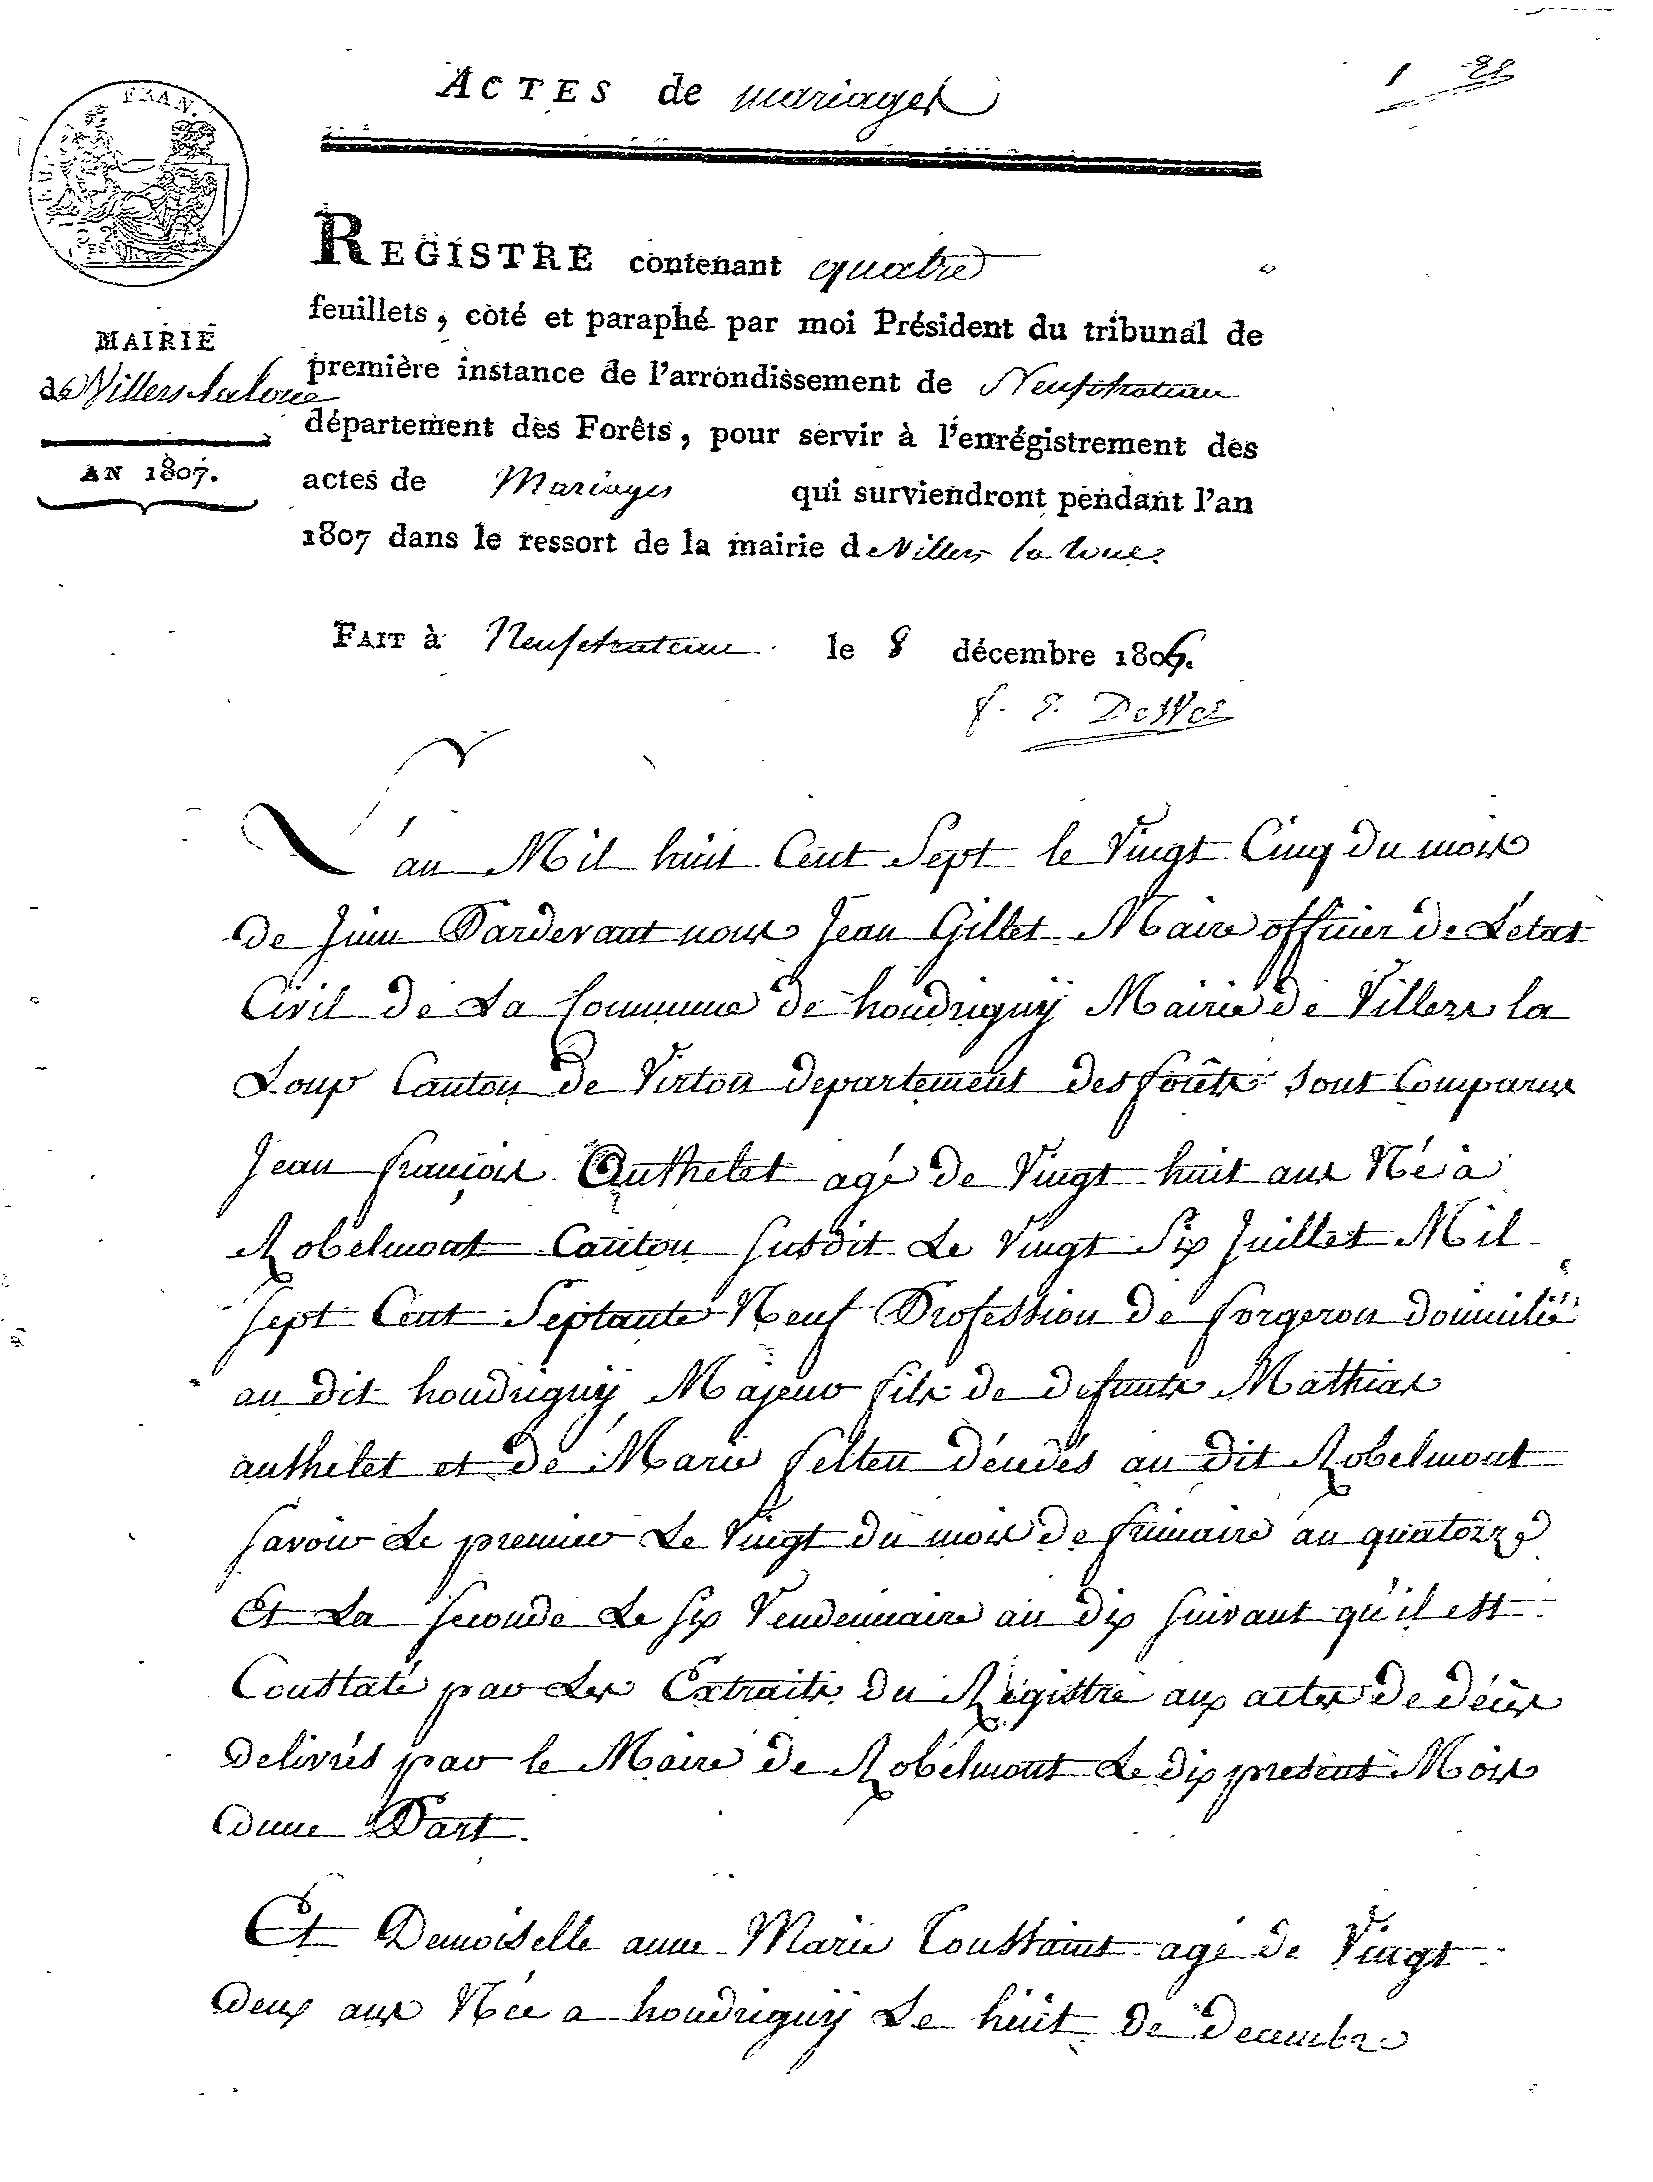 ACTES de mariages
1
FRAN.
REGISTRE contenant quatre
feuillets, coté et paraphé par moi Président du tribunal de
MAIRIE
première instance de l'arrondissement de Neufchateau
de Villers la loue
département des Forêts, pour servir à l'enrégistrement des
AN 1807.
actes de Mariages qui surviendront pendant l'an
1807 dans le ressort de la mairie de Villers la loue
FAIT à Neufchateau le 8 décembre 1806.
L'an Mil huit Cent Sept le Vingt Cinq du mois
de Juin Pardevant nous Jean Gillet Maire officier de L'etat
Civil de La Commune de houdrignÿ Mairie de Villers la
Loup Canton de Virton departement des forêts sont Comparus
Jean françois Authelet agé de Vingt huit ans Né à
Robelmont Canton susdit Le Vingt Six Juillet Mil
sept Cent Septante Neuf Profession de forgeron domicilié
au dit houdrignÿ Majeur fils de defunts Mathias
authelet et de Marie felten décédés au dit Robelmont
savoir Le premier Le Vingt du mois de frimaire an quatorze
Et La seconde Le six Vendemiaire an dix suivant qu'il est
Constaté par Les Extraits du Régistre aux actes de décès
delivrés par le Maire de Robelmont Le dix present Mois
dune Part.
Et Demoiselle anne Marie Toussaint agé de Vingt
deux ans Née a houdrignÿ Le huit de decembre